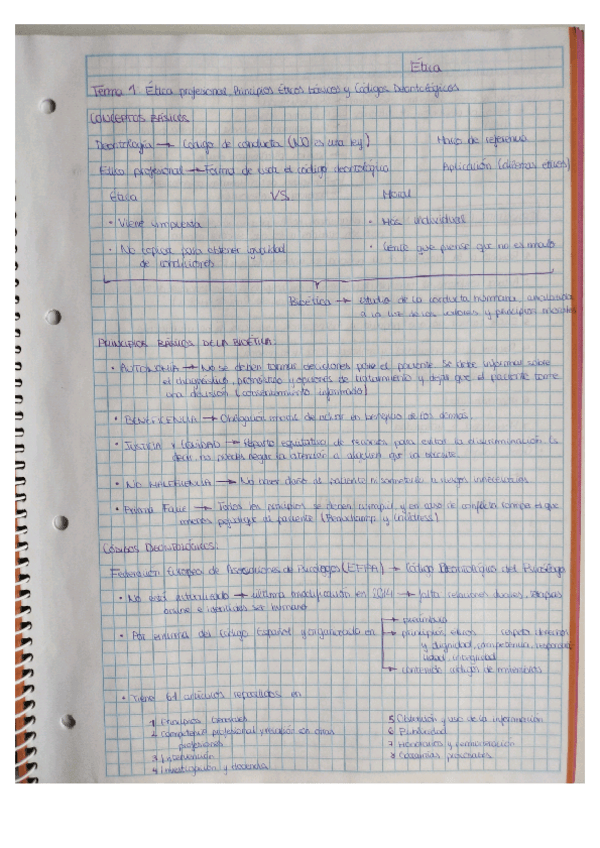 Ética
Tema 1. Ética profesional. Principios éticos básicos y Códigos Deontológicos
CONCEPTOS BÁSICOS
Deontología → Código de conducta (NO es una ley) Marco de referencia
Ética profesional → Forma de usar el código deontológico Aplicación (dilemas éticos)
Ética VS. Moral
· Viene impuesta · Más individual
· No copiar para obtener igualdad de condiciones · Gente que piense que no es malo
Bioética → estudio de la conducta humana, analizada
a la luz de los valores y principios morales
PRINCIPIOS BÁSICOS DE LA BIOÉTICA:
· AUTONOMÍA → No se deben tomar decisiones por el paciente. Se debe informar sobre
el diagnóstico, pronóstico y opciones de tratamiento y dejar que el paciente tome
una decisión (consentimiento informado)
· BENEFICENCIA → Obligación moral de actuar en beneficio de los demás.
· JUSTICIA → Reparto equitativo de recursos para evitar la discriminación. Es
decir, no puedes negar la atención a alguien que la necesite.
· NO MALEFICENCIA → No hacer daño al paciente ni someterle a riesgos innecesarios
· Prima Facie → Todos los principios se deben cumplir, y en caso de conflicto rompe el que
menos perjudique al paciente (Beauchamp y Childress)
CÓDIGOS DEONTOLÓGICOS:
Federación Europea de Asociaciones de Psicólogos (EFPA) → Código Deontológico del Psicólogo
· No está actualizado → última modificación en 2014 → falta relaciones duales, terapias
online e identidades ser humano
· Por encima del Código Español y organizado en → preámbulo
→ principios éticos: respeto derechos
y dignidad, competencia, responsa-
bilidad, integridad
→ contenido códigos de miembros
· Tiene 61 artículos repartidos en
1. Principios Generales
2. Competencia profesional y relación con otros
profesionales
3. Intervención
4. Investigación y docencia
5. Obtención y uso de la información
6. Publicidad
7. Honorarios y remuneración
8. Garantías procesales